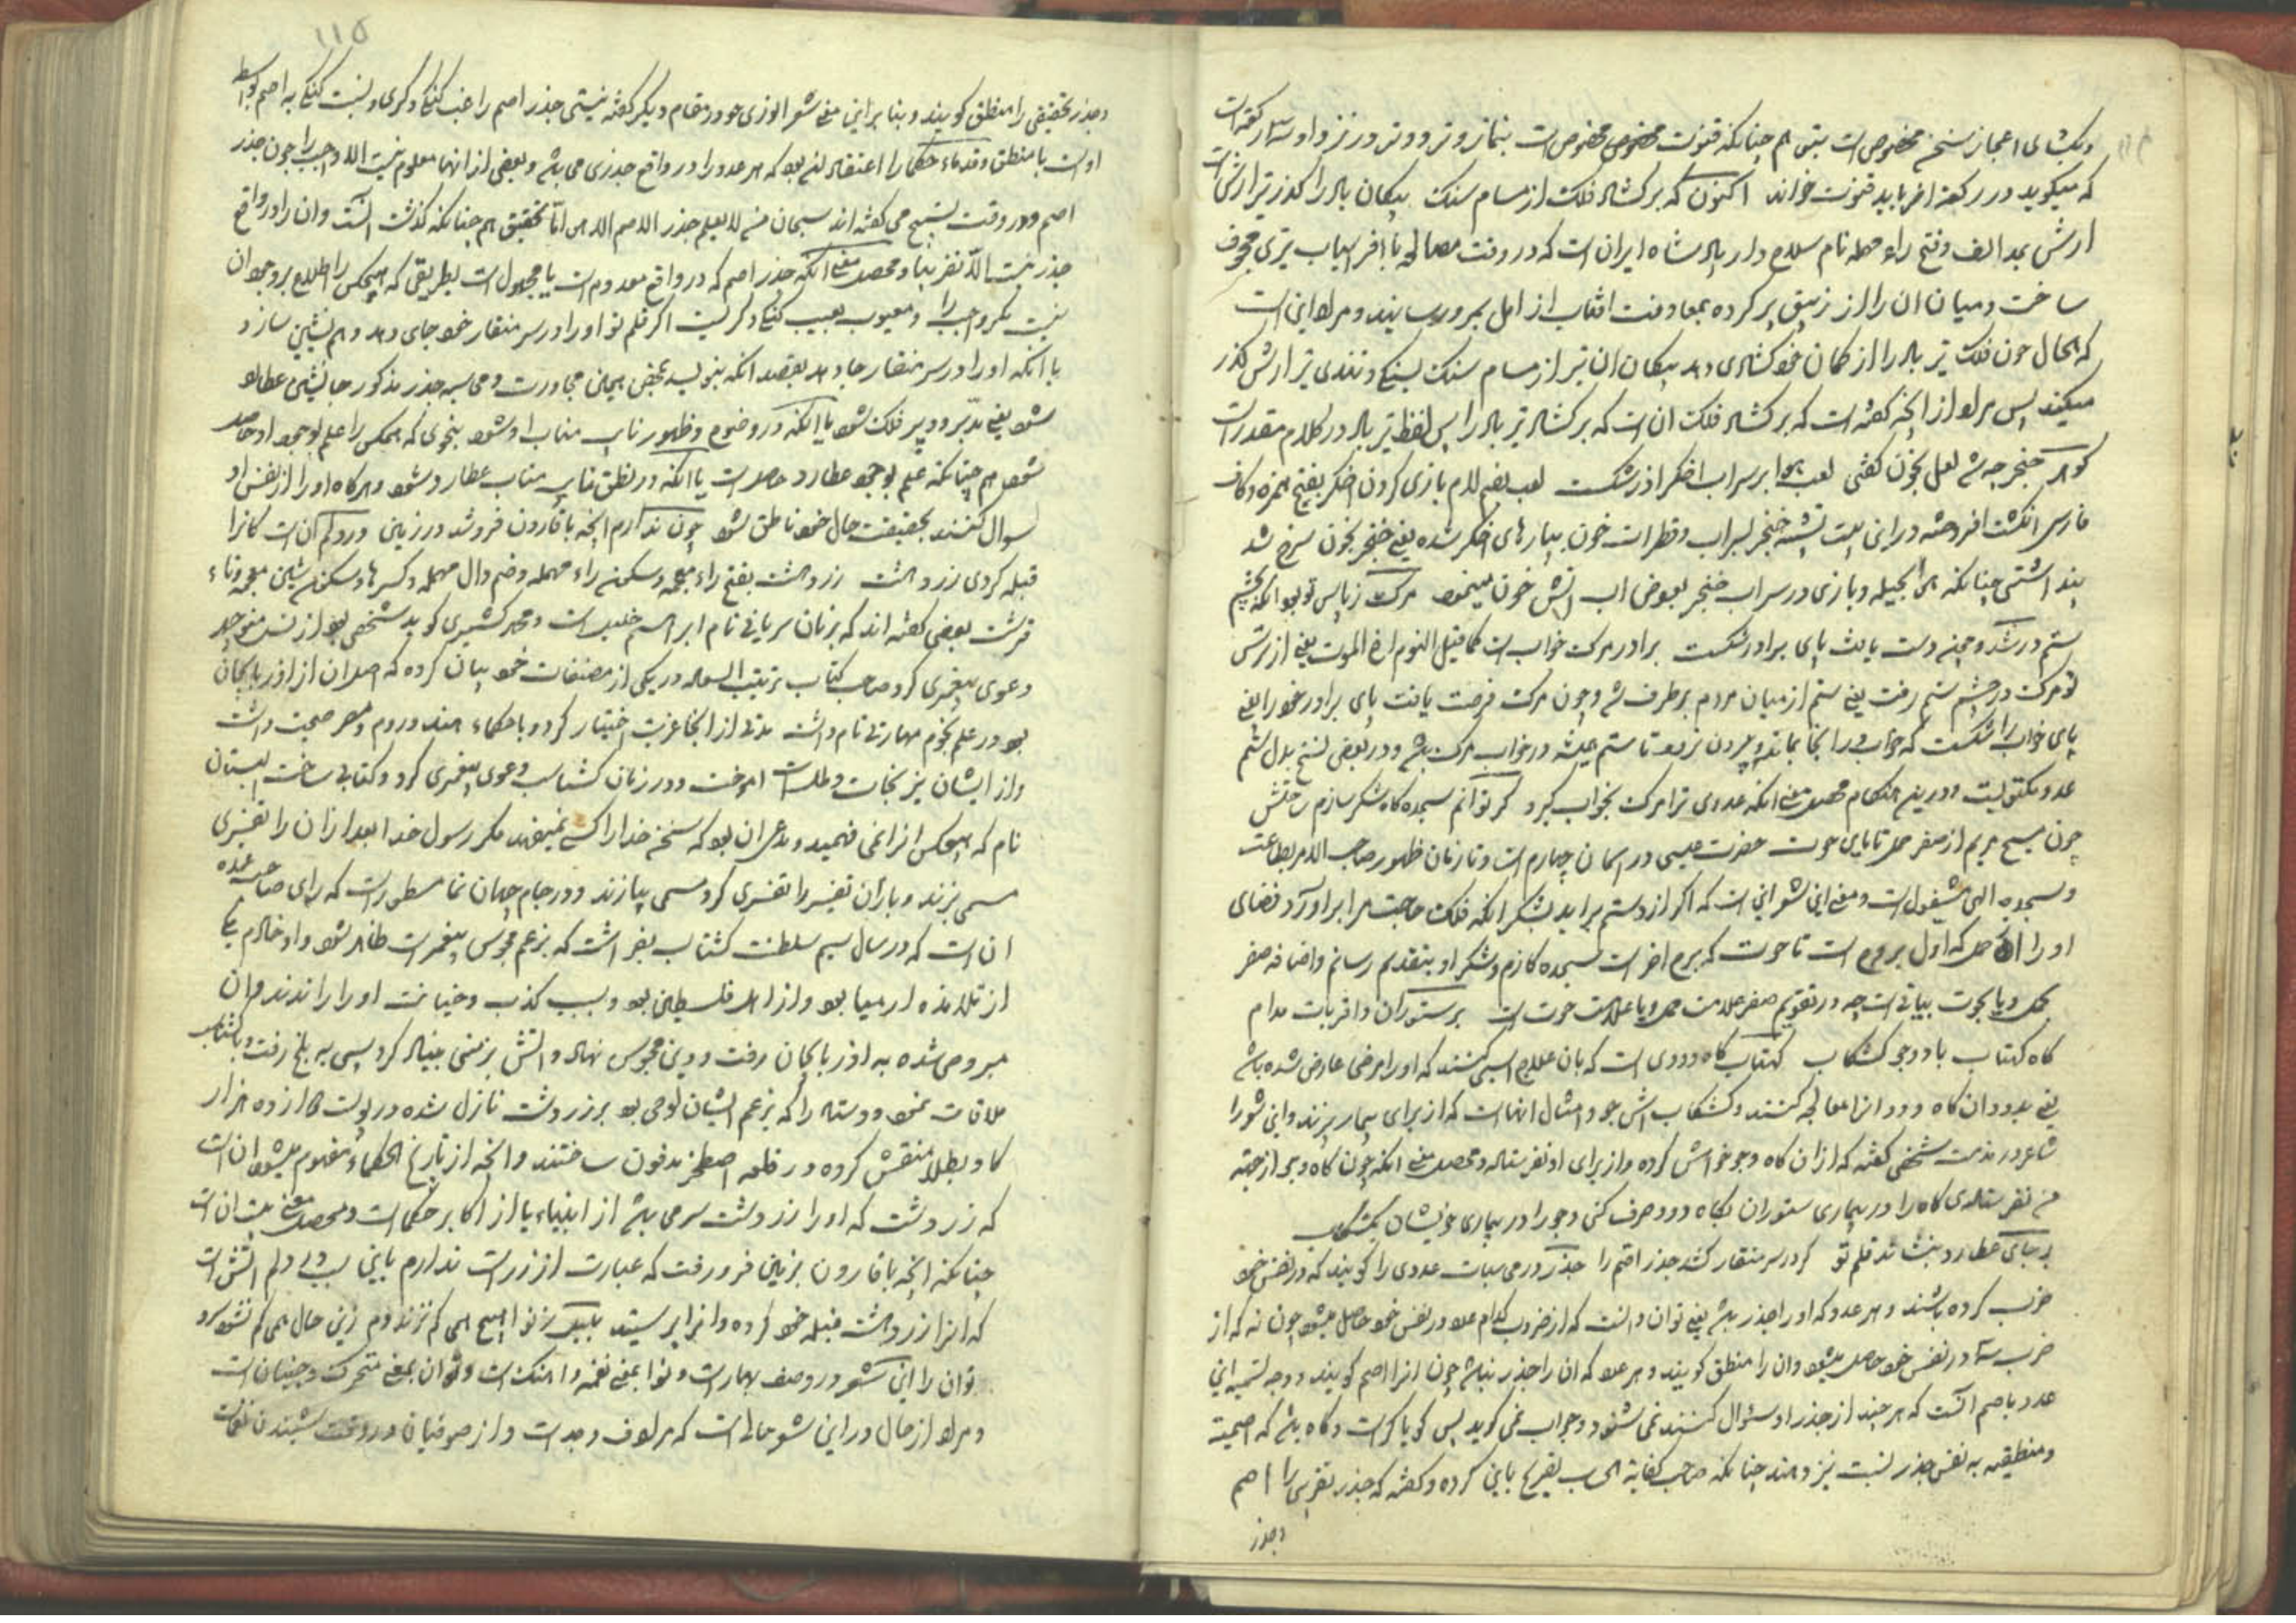 و یکتای اعجاز سخن مخصوص است بتو هم چنانکه قنوت مخصوص است بنماز وتر و وتر در نزد او سه رکعت است
که میگوید در رکعت آخر باید قنوت خواند اکنون که بر گشاد فلک از مسام سنگ پیکان باد را گذر تیر آرش است
ارش بمد الف و فتح راء مهمله نام سلاح دار پادشاه ایران است که در وقت مصالحه با افراسیاب تیری مجوف
ساخت و میان ان را از زیبق پر کرده بمعاونت افتاب از امل بمرو رسانید و مراد این است
که الحال چون فلک تیر باد را از کمان خود گشاد می دهد پیکان ان تیر از مسام سنگ بسبکی و تندی تیر ارش گذر
میکند پس مراد از انچه گفته است که بر گشاد فلک ان است که بر گشاد تیر باد را پس لفظ تیر باد در کلام مقدر است
گوهر خنجر چه شد لعل بخون گفتی لعب هوا بر سراب اخگر اذر شکست لعب بفتح لام بازی کردن اخگر بفتح همزه و کاف
فارسی انگشت افروخته و در این بیت تشبیه خنجر بسراب و قطرات خون بپارهای اخگر شده یعنی خنجر بخون سرخ شد
پنداشتی چنانکه هوا بحیله و بازی در سراب خنجر بعوض اب اتش خون مینمود مرگ ز پاس تو بود انکه بچشم
ستم در شد و چون دست یافت پای برادر شکست برادر مرگ خواب است کما قیل النوم اخ الموت یعنی از ترس
تو مرگ در چشم ستم رفت یعنی ستم از میان مردم برطرف شد و چون مرگ فرصت یافت پای برادر خود را یعنی
پای خواب را شکست که خواب را انجا بماند و بیرون نرود تا ستم همیشه در خواب مرگ باشد و در بعضی نسخ بدل ستم
عدو مکتوبست و درین هنگام محصل معنی انکه عدوی ترا مرگ بخواب کبرد گر توانم سجده گاه شکر سازم ساحتش
چون مسیح مریم از صفر حمل تا پای حوت حضرت عیسی در اسمان چهارم است و تا زمان ظهور صاحب الامر بطاعت
و سجده الهی مشغول است و معنی این شعر این است که اگر از دستم براید بشکر انکه فلک حاجت مرا براورد فضای
او را از حمل که اول بروج است تا حوت که برج اخر است سجده گاه کردم و شکر او بتقدیم رسانم و اضافه صفر
بحمل و یا بحوت بیانی است چه در تقویم صفر علامت حمل و یا علامت حوت است بر ستوران و اقربات مدام
کاه کهتاب باد و جو کشکاب کهتاب کاه دودی است که بان علاج اسبی کنند که او را مرضی عارض شده باشد
یعنی بدود ان کاه دود انرا معالجه کنند و کشکاب اش جو و امثال انهاست که از برای بیمار پزند و این شعر را
شاعر در مذمت شخصی گفته که از ان کاه و جو خواهش کرده و از برای او نفرستاده و محصل معنی انکه چون کاه و جو از جهته
من نفرستادی کاه را در بیماری ستوران بکاه دود صرف کنی و جو را در بیماری خویشان بکشکاب
بر جای عطارد بنشاند قلم تو گر در سر منقار کشد جذر اصم را جذر در محاسبات عددی را گویند که در نفس خود
ضرب کرده باشند و هر عدد که او را جذر باشد یعنی توان دانست که از ضرب کدام عدد در نفس خود حاصل میشود چون نه که از
ضرب سه در نفس خود حاصل میشود و ان را منطق گویند و هر عدد که ان را جذر نباشد چون انرا اصم گویند و وجه تسمیه این
عدد باصم انست که هر چند از جذر او سؤال کنند نمی شنود و جواب نمی گوید پس گویا کر است و گاه باشد که اصمیت
و منطقیت به نفس جذر نسبت نیز دهند چنانکه صاحب کفایة الحساب تصریح باین کرده و گفته که جذر تقریبی را اصم
و جذر
١١٥
و جذر تحقیقی را منطق گویند و بنا بر این معنی شعر انوری خود در مقام دیگر گفته نیستی جذر اصم را غب گنگی و کری و نسبت گنگی به اصم بواسطه
اوست با منطق و قدماء حکما را اعتقاد این بود که هر عدد را در واقع جذری می باشد و بعضی از انها معلوم نیست الا واجب را چون جذر
اصم و در وقت تسبیح می گفته اند سبحان من لا یعلم جذر الاصم الا هو اما تحقیق هم چنانکه گذشت انست و ان را در واقع
جذر نیست الا تقریبا و محصل معنی انکه جذر اصم که در واقع معدوم است یا مجهول است بطریقی که هیچکس را اطلاع بر وجود ان
نیست مگر واجب را و معیوب بعیب گنگی و کریست اگر قلم تو او را در سر منقار خود جای دهد و هم نشین سازد
با انکه او را در سر منقار جا دهد بقصد انکه بنویسد بمحض همین مجاورت و محاسبه جذر مذکور جانشین عطارد
شود یعنی مدبر و دبیر فلک شود یا انکه در وضوح و ظهور نایب مناب او شود بنحوی که همکس را علم بوجود او حاصل
شود هم چنانکه علم بوجود عطارد حاصل است یا انکه در نطق نایب مناب عطارد شود و هرگاه او را از نفس او
سوال کنند بحقیقت حال خود ناطق شود چون ندارم انچه با قارون فرو شد در زمین ورد کم ان است کانرا
قبله کردی زردهشت زردهشت بفتح زاء معجمه و سکون راء مهمله و ضم دال مهمله و کسر ها و سکون شین معجمه و تاء
قرشت بعضی گفته اند که بزبان سریانی نام ابراهیم خلیل است و مجد کشمیری گوید شخصی بود از نسل منوچهر
دعوی پیغمبری کرد و صاحب کتاب ترتیب السعاده در یکی از مصنفات خود بیان کرده که اصل ان از اذربایجان
بود در علم نجوم مهارتی تام داشت مدتی از انجا غربت اختیار کرد و با حکماء هند و روم و مصر صحبت داشت
و از ایشان نیرنجات و طلسمات اموخت و در زمان گشتاسب دعوی پیغمبری کرد و کتابی ساخت ابستان
نام که هیچکس انرا نمی فهمید و مدعی ان بود که سخن خدا را کسی نمیفهمد مگر رسول خدا بعد از ان را تفسیری
مسمی بزند و باز ان تفسیر را تفسیری کرد مسمی بپازند و در جام جهان نما مسطور است که رای صاحب عمده
ان است که در سال سیم سلطنت گشتاسب زردهشت که بزعم مجوس پیغمبر است ظاهر شد و او خادم یکی
از تلامذه ارمیا بود و از اهل فلسطین بود و بسبب کذب و خیانت او را راندند و ان
مبروص شده به اذربایجان رفت و دین مجوس نهاد و اتش پرستی بنیاد کرد پس به بلخ رفت و با گشتاسب
ملاقات نمود و وستا را که بزعم ایشان وحی بود بر زردشت نازل شده در پوست دوازده هزار
گاو بطلا منقش کرده در قلعه اصطخر مدفون ساختند و انچه از تاریخ الحکماء مفهوم میشود ان است
که زردشت که او را زردشت سرمی باشد از انبیاء یا از اکابر حکماست و محصل معنی بیت ان است
چنانکه انچه با قارون بزمین فرو رفت که عبارت از زر است ندارم باین سبب ورد دلم اتش است
که انرا زردهشت قبله خود کرده و انرا پرستید بلبل ز نوا هیچ همی کم نزند دم زین حال همی کم نشود سرو
نوان را این شعر در وصف بهار است و نوا بمعنی نغمه و اهنگ است و نوان بمعنی متحرک و جنبان است
و مراد از حال در این شعر حالی است که مرادف وجد است و از صوفیان در وقت شنیدن نغمات